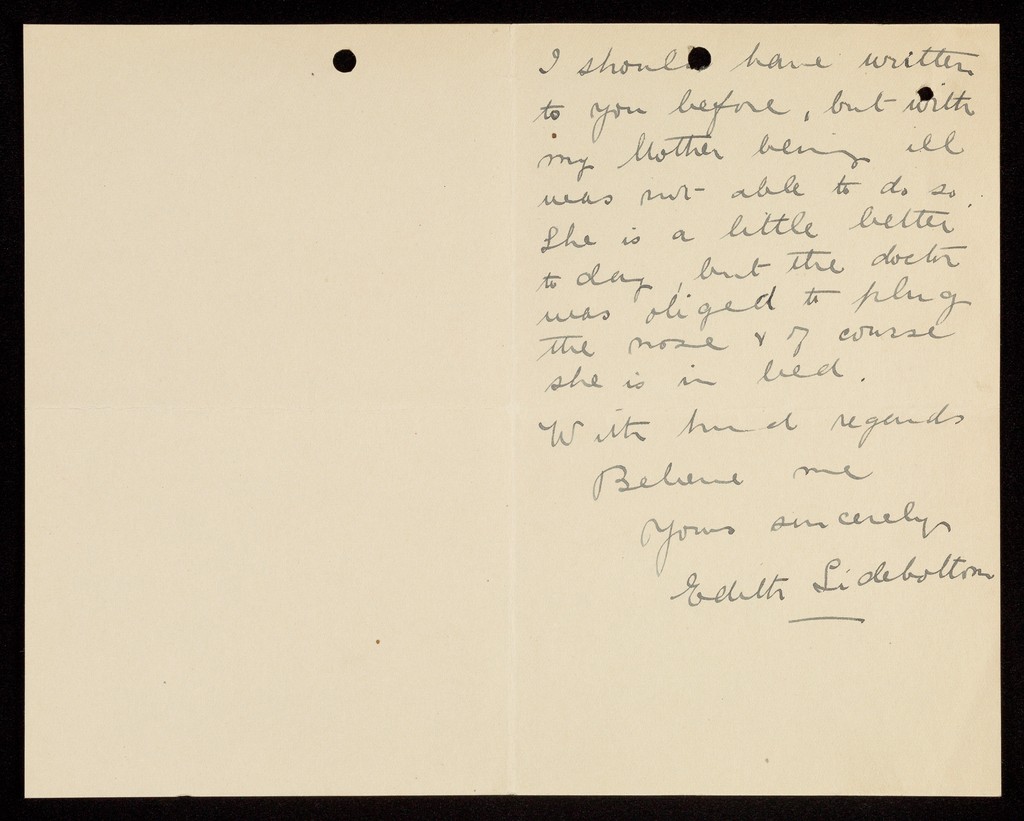 I should have written
to you before, but with
my Mother being ill
was not able to do so.
She is a little better
to day, but the doctor
was oliged to plug
the nose & of course
she is in bed.
With kind regards
Believe me
Yours sincerely
Edith Sidebottom